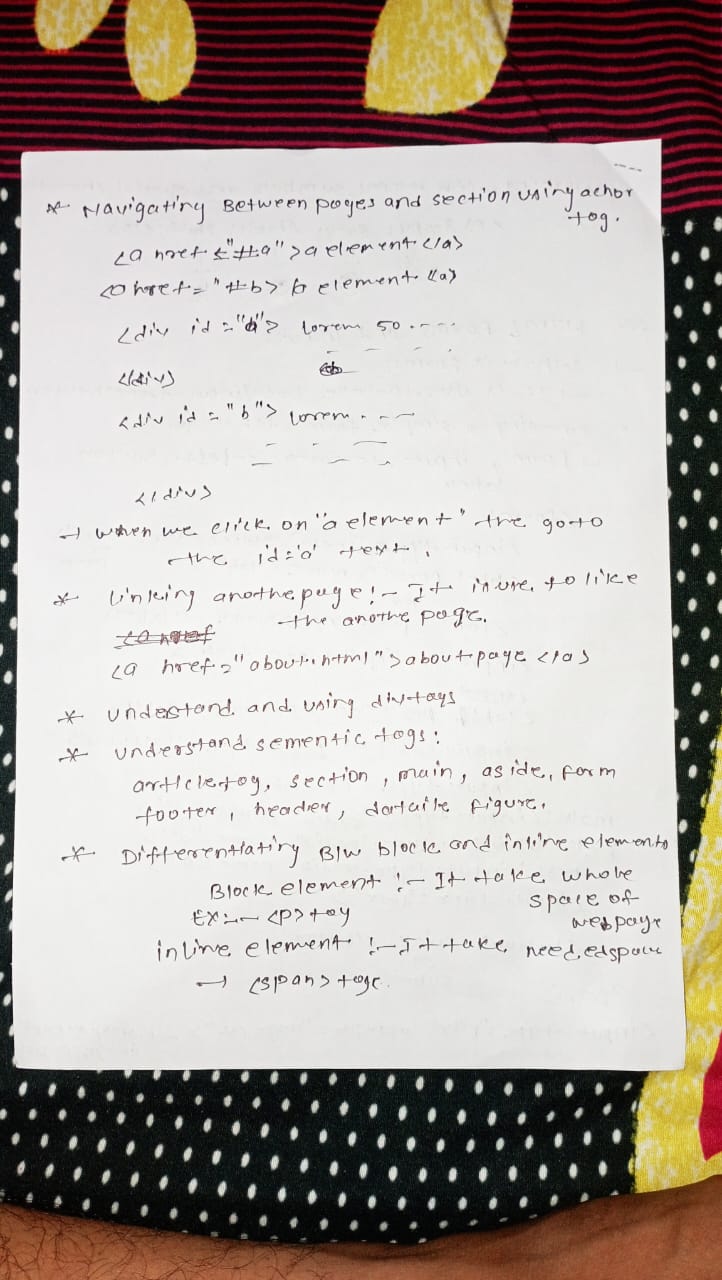 * Navigating Between pages and section using achor
tag.
<a href="#a">a element</a>
<a href="#b> b element</a>
<div id="a"> lorem 50 . - - -
</div>
<div id="b"> lorem - - -
</div>
→ when we click on "a element" the goto
the id='a' text.
* linking anothe page :- It is use to like
the anothe page.
<a href="about.html">about page</a>
* understand and using div tags
* understand sementic tags :
article tag, section, main, aside, form
footer, header, figure.
* Differentiating B/w block and inline elements
Block element :- It take whole
space of
Ex:- <p> tag
webpage
inline element :- It take needed space
→ <span> tag.